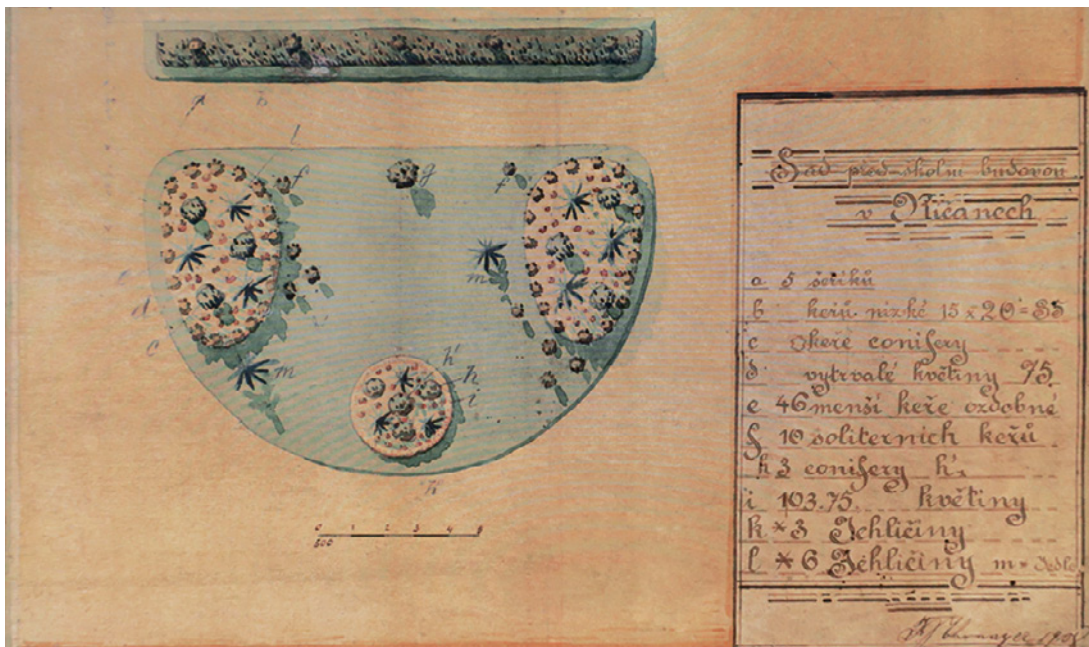 a b
l
f g f
m
d
c
m h' h i
k
0 1 2 3 4 5
Sad před školní budovou
v Říčanech
a 5 šeříků
b keřů nízké 15 x 20 = 35
c keře conifery
d vytrvalé květiny 75
e 46 menší keře ozdobné
f 10 soliterních keřů
h 3 conifery h'.
i 103.75. květiny
k * 3 Jehličiny
l * 6 Jehličiny m = Jedle